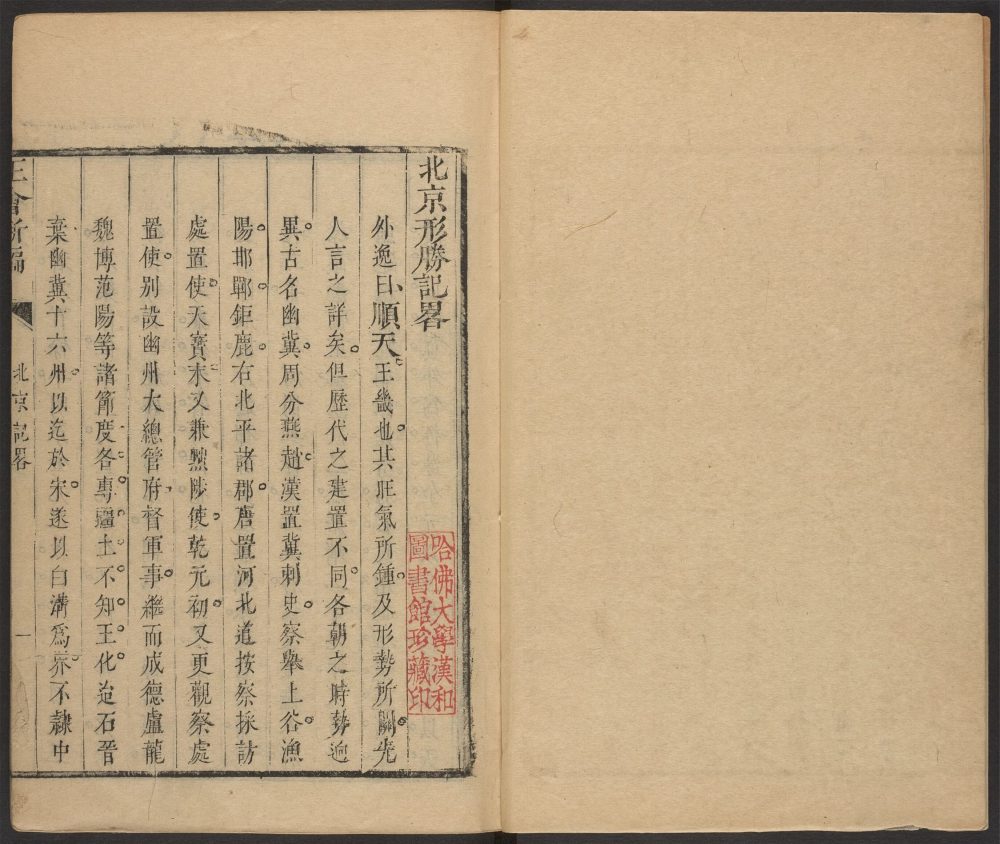 北京形勝記畧
外逸曰順天王畿也其旺氣所鍾及形勢所關先
人言之詳矣但歷代之建置不同各朝之時勢逈
異古名幽冀周分燕趙漢置冀刺史察舉上谷漁
陽邯鄲鉅鹿右北平諸郡唐置河北道按察採訪
處置使天寶末又兼黜陟使乾元初又更觀察處
置使別設幽州大總管府督軍事繼而成德盧龍
魏博范陽等諸節度各專疆土不知王化迨石晉
棄幽冀十六州以迄於宋遂以白溝為界不隸中
王會新編
北京記畧
一
哈佛大學漢和
圖書館珍藏印